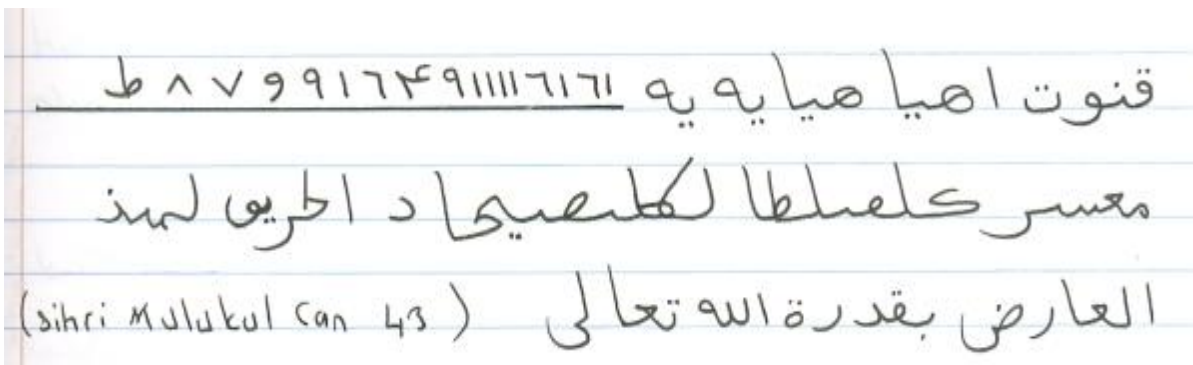 قنوت اهيا هيا يه يه ١٦١٦١١١١٩٤٦١٩٩٧٨ ط
معسر كلصلطا لكلصيحا د الحريق لهذ
العارض بقدرة الله تعالى (sihri Mulukul Can 43)